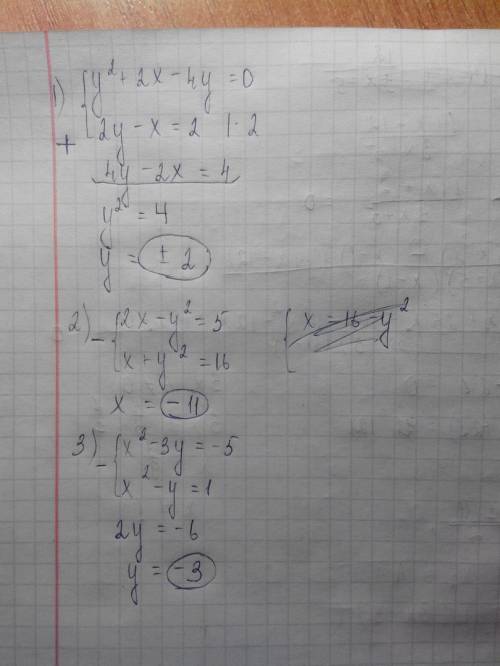 1) { y² + 2x - 4y = 0
+ { 2y - x = 2 | · 2
4y - 2x = 4
y² = 4
y = ± 2
2) - { 2x - y² = 5
{ x + y² = 16
{ x = 16 - y²
x = -11
3) - { x² - 3y = -5
{ x² - y = 1
2y = -6
y = -3